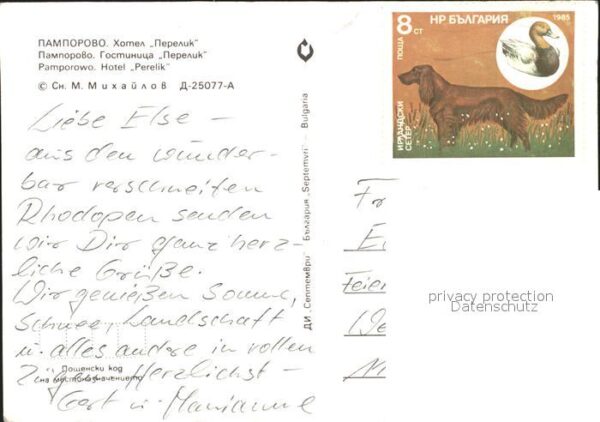 ПАМПОРОВО. Хотел „Перелик"
Пампорово. Гостиница „Перелик"
Pamporowo. Hotel „Perelik"
© Сн. М. Михайлов Д-25077-А
Liebe Else –
aus den wunder-
bar verschneiten
Rhodopen senden
wir Dir ganz herz-
liche Grüße.
Wir genießen Sonne,
Schnee, Landschaft
u. alles andere in vollen
Zügen. Herzlichst –
Gert u. Marianne
Пощенски код
на местоназначението
ДИ „Септември" България „Septemvri" Bulgaria
8 СТ
НР БЪЛГАРИЯ
1985
ПОЩА
ИРЛАНДСКИ
СЕТЕР
Fr
E
Feier
We
N
privacy protection
Datenschutz